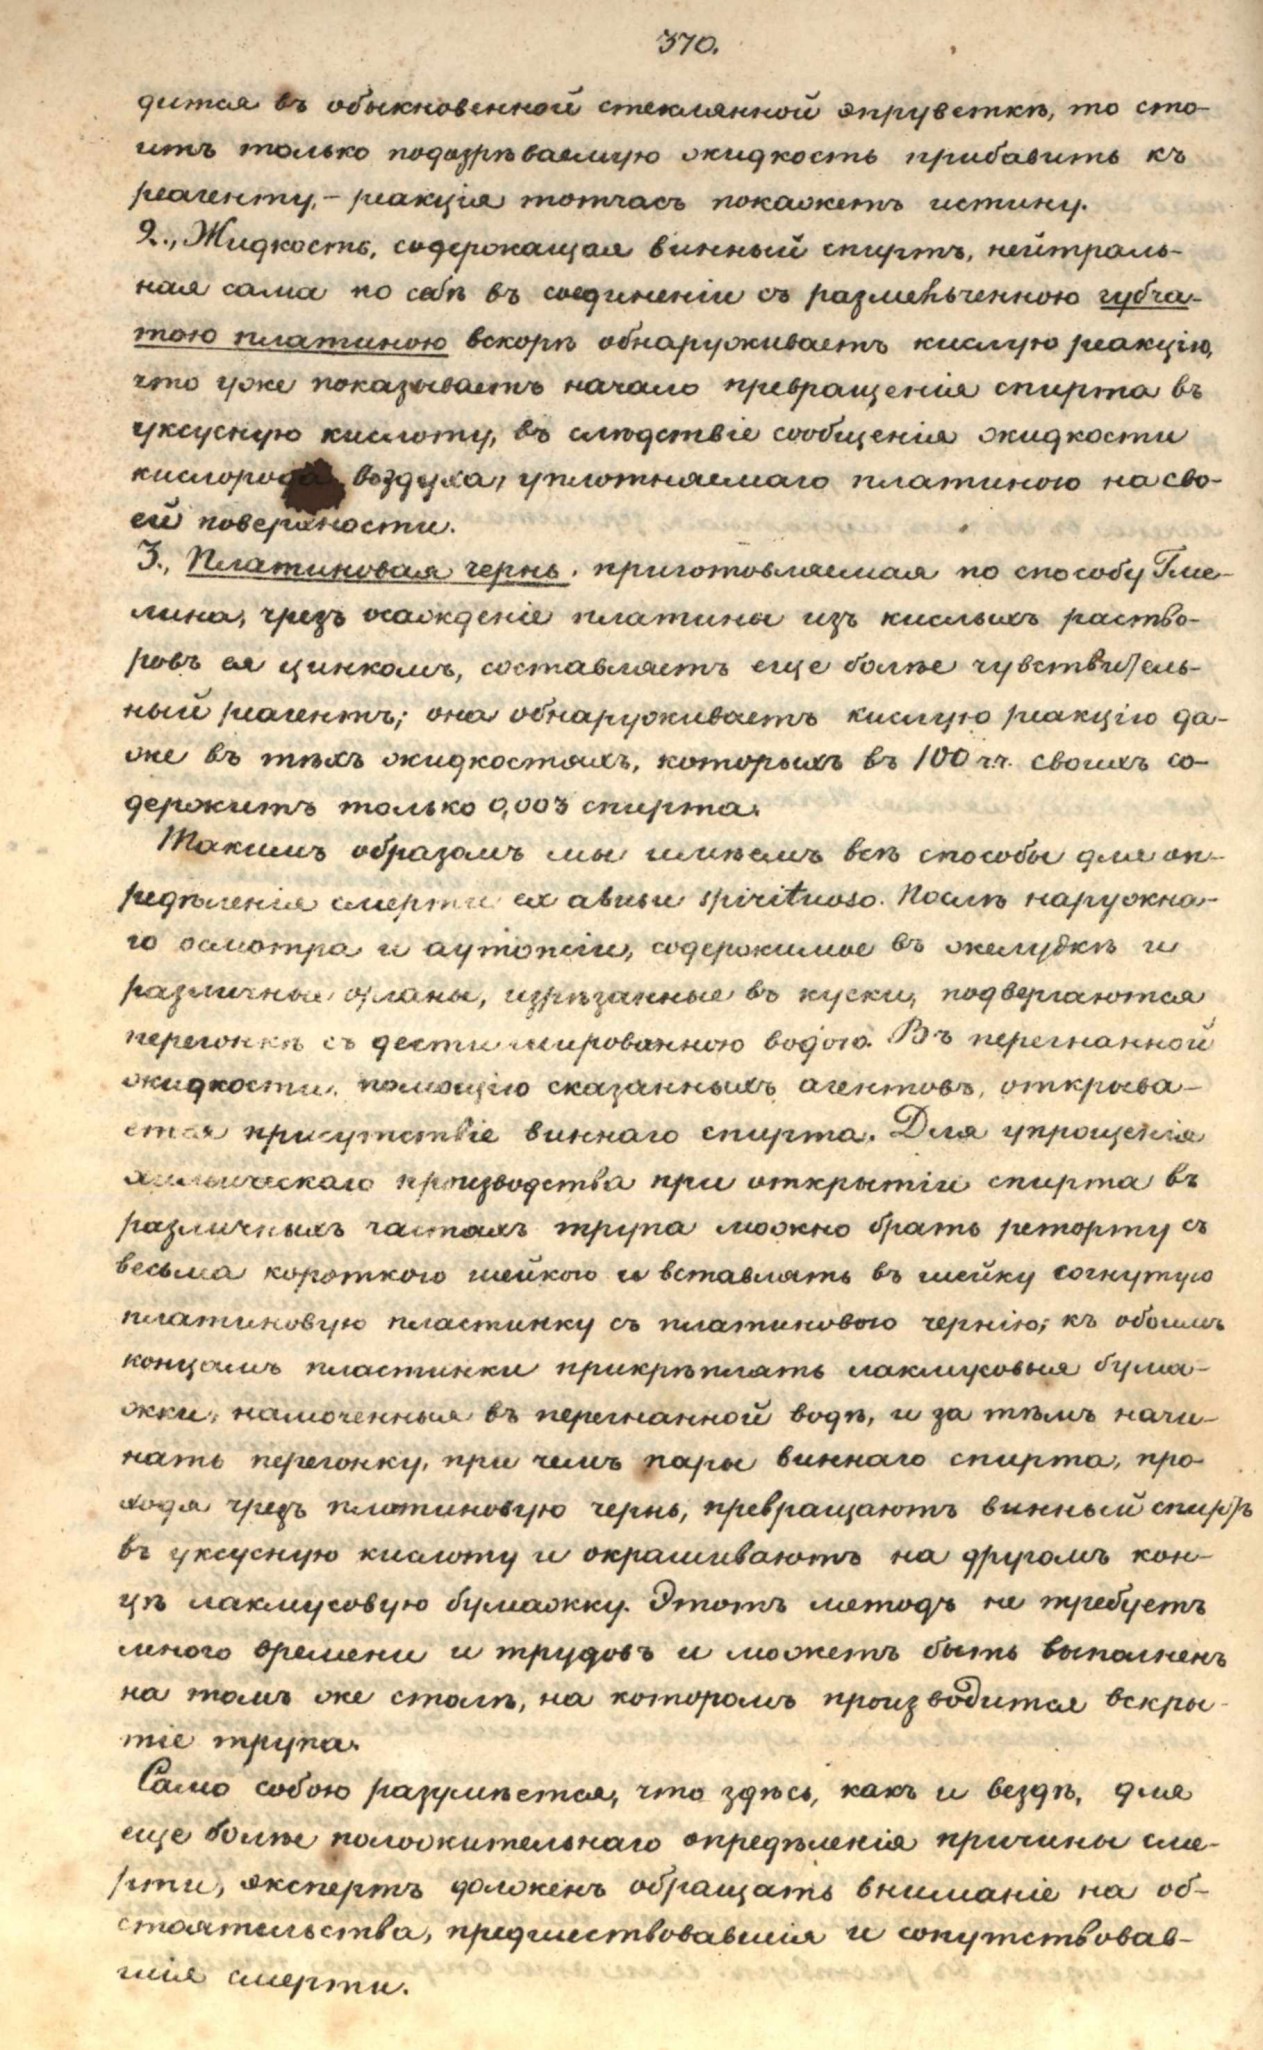 370.
дится въ обыкновенной стеклянной эпруветкѣ, то сто-
итъ только подозрѣваемую жидкость прибавить къ
реагенту, – реакція тотчасъ покажетъ истину.
2., Жидкость, содержащая винный спиртъ, нейтраль-
ная сама по себѣ въ соединеніи съ размельченною губча-
тою платиною вскорѣ обнаруживаетъ кислую реакцію,
что уже показываетъ начало превращенія спирта въ
уксусную кислоту, въ слѣдствіе сообщенія жидкости
кислорода воздуха, уплотняемаго платиною на сво-
ей поверхности.
3., Платиновая чернь, приготовляемая по способу Гме-
лина, чрезъ осажденіе платины изъ кислыхъ раство-
ровъ ея цинкомъ, составляетъ еще болѣе чувствитель-
ный реагентъ; она обнаруживаетъ кислую реакцію да-
же въ тѣхъ жидкостяхъ, которыхъ въ 100 чч. своихъ со-
держитъ только 0,003 спирта.
Такимъ образомъ мы имѣемъ всѣ способы для оп-
редѣленія смерти ex abusu spirituoso. Послѣ наружна-
го осмотра и аутопсіи, содержимое въ желудкѣ и
различные органы, изрѣзанные въ куски, подвергаются
перегонкѣ съ дестиллированною водою. Въ перегнанной
жидкости, помощію сказанныхъ агентовъ, открыва-
ется присутствіе виннаго спирта. Для упрощенія
химическаго производства при открытіи спирта въ
различныхъ частяхъ трупа можно брать реторту съ
весьма короткою шейкою и вставлять въ шейку согнутую
платиновую пластинку съ платиновою чернію; къ обоимъ
концамъ пластинки прикрѣплять лакмусовыя бума-
жки, намоченныя въ перегнанной водѣ, и за тѣмъ начи-
нать перегонку, при чемъ пары виннаго спирта, про-
ходя чрезъ платиновую чернь, превращаютъ винный спиртъ
въ уксусную кислоту и окрашиваютъ на другомъ кон-
цѣ лакмусовую бумажку. Этотъ методъ не требуетъ
много времени и трудовъ и можетъ быть выполненъ
на томъ же столѣ, на которомъ производится вскры-
тіе трупа.
Само собою разумѣется, что здѣсь, какъ и вездѣ, для
еще болѣе положительнаго опредѣленія причины сме-
рти, экспертъ долженъ обращать вниманіе на об-
стоятельства, предшествовавшія и сопутствовав-
шія смерти.